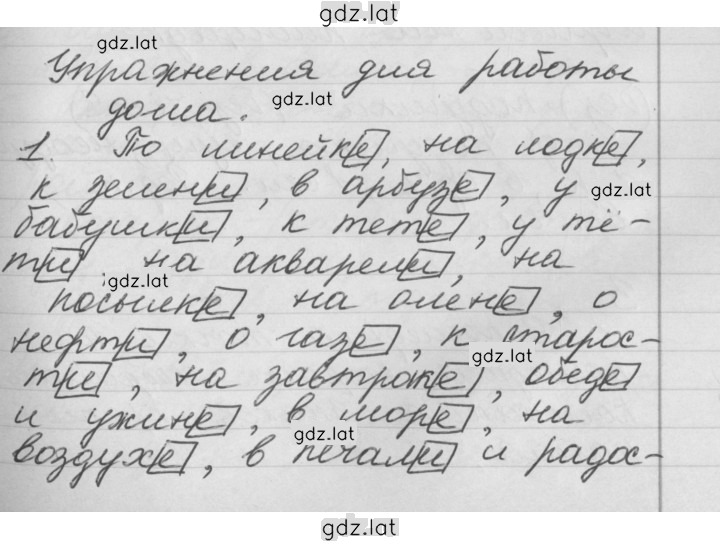 gdz.lat
gdz.lat
Упражнения для работы
gdz.lat
дома.
1. По линейке, на лодке,
к зелени, в арбузе, у gdz.lat
бабушки, к тете, у тё-
ти, на акварели, на
gdz.lat
посылке, на олене, о
нефти, о газе, к старос-
gdz.lat
ти, на завтраке, обеде
и ужине, в море, на
gdz.lat
воздухе, в печали и радос-
gdz.lat